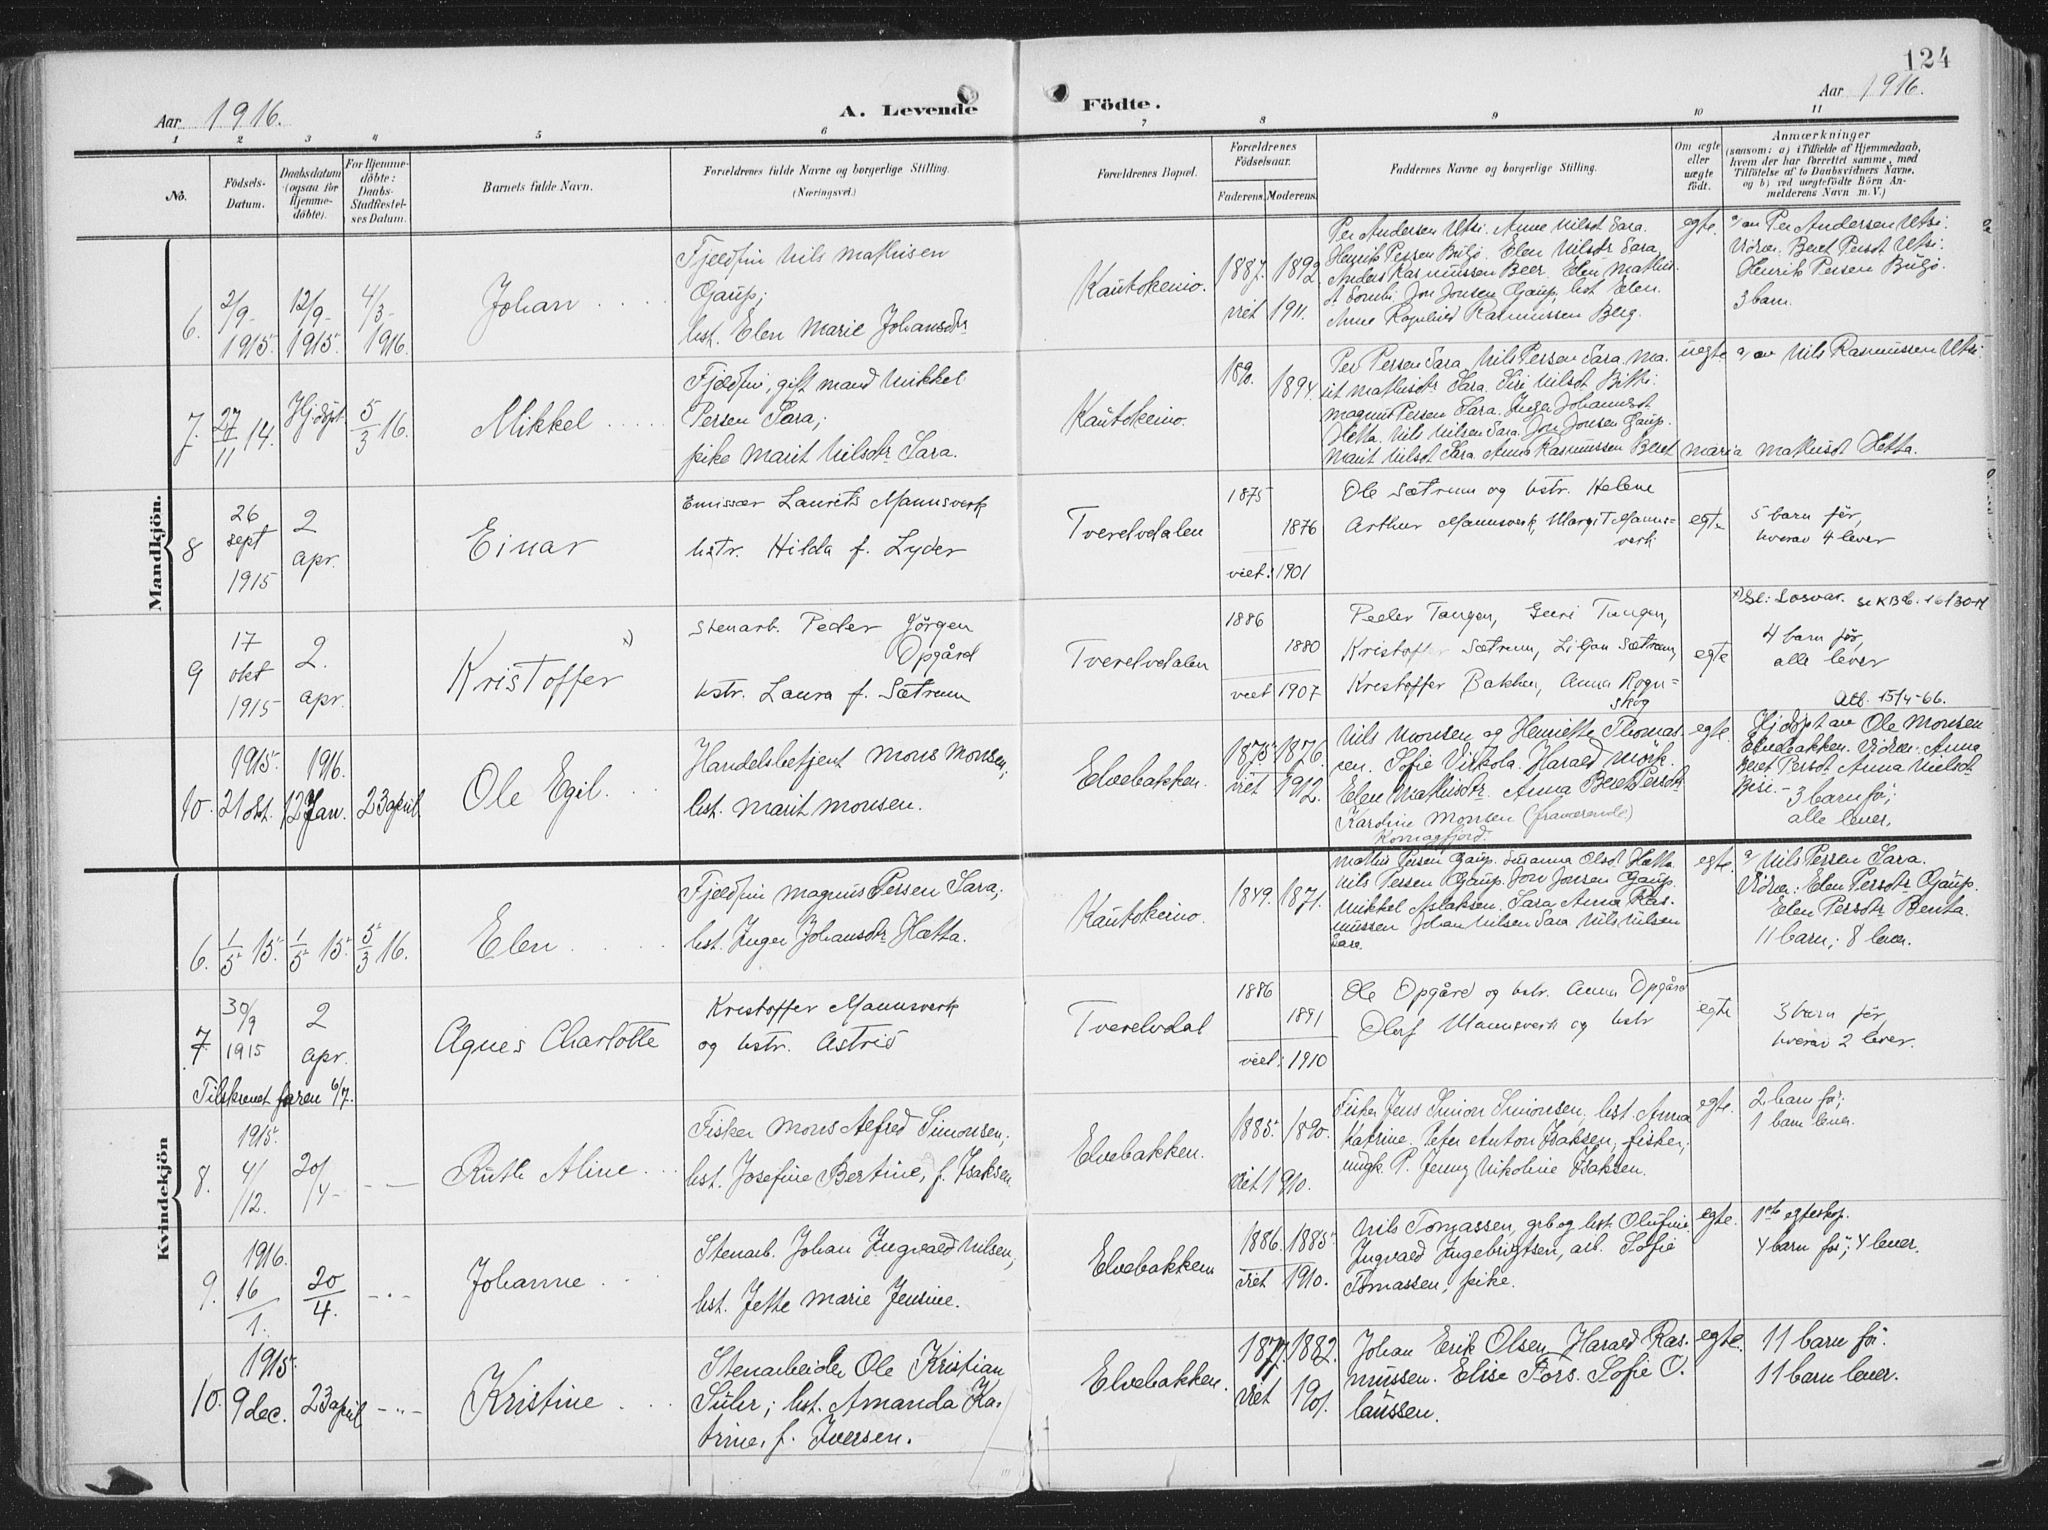 124
Aar 1916.
A. Levende Födte.
Aar 1916.
1 2 3 4 5 6 7 8 9 10 11
No.
Födsels-
Datum.
Daabsdatum
(ogsaa for
Hjemme-
döbte).
For Hjemme-
döbte:
Daabs-
Stadfæstel-
ses Datum.
Barnets fulde Navn.
Forældrenes fulde Navne og borgerlige Stilling.
(Næringsvei.)
Forældrenes Bopæl.
Forældrenes
Födselsaar.
Faderens. Moderens.
Faddernes Navne og borgerlige Stilling.
Om ægte
eller
uægte
födt.
Anmærkninger
(saasom: a) i Tilfælde af Hjemmedaab,
hvem der har forrettet samme, med
Tilföielse af to Daabsvidners Navne,
og b) ved uægtefödte Börn An-
melderens Navn m. V.)
Mandkjön.
6. 2/9- 1915. 12/9- 1915. 4/3- 1916.
Johan
Fjeldfin Nils Mathisen
Gaup;
hst. Elen Marie Johansdtr
Kautokeino.
1887. 1892
viet 1911.
Per Andersen Utsi. Anne Nilsdt Sara.
Henrik Persen Buljo. Elen Nilsdtr Sara
Anders Rasmussen Beer. Elen Mathis-
dt Sombi. Jon Jonsen Gaup, hst Elen.
Anne Ragnhild Rasmussen Berg.
egte.
a/ av Per Andersen Utsi.
Vidner. Beret Persdt Utsi.
Henrik Persen Buljo.
3 barn.
7. 27/11 14. Hjdøpt 5/3 16.
Mikkel
Fjeldfin, gift mand Mikkel
Persen Sara;
pike Marit Nilsdtr. Sara.
Kautokeino.
1890. 1894.
Per Persen Sara, Nils Persen Sara. Ma-
rit Mathisdtr Sara. Siri Nilsdt Bitti.
Magnus Persen Sara. Inger Johannsdt
Hetta. Nils Nilsen Sara. Jon Jonsen Gaup.
Marit Nilsdt Sara. Anna Rasmussen Beret Maria Mathisdt Hetta.
uegte
a/ av Nils Rasmussen Utsi.
8 26 sept 1915 2 apr.
Einar
Emissær Laurits Mannsverk
hstr. Hilda f. Lyder
Tverelvdalen
1875
1876
viet: 1901
Ole Sætrum og hstr. Helene
Arthur Mannsverk, Margit Manns-
verk
egte
5 barn før,
hvorav 4 lever
9 17 okt 1915 2. apr.
Kristoffer x)
Stenarb. Peder Jørgen
Opgård
hstr. Laura f. Sætrum
Tverelvdalen
1886
1880
viet 1907
Peder Tangen, Guri Tangen,
Kristoffer Sætrum, Liljan Sætrum,
Kristoffer Bakken, Anna Rogn-
skog
egte
4 barn før,
alle lever
Atb. 15/4-66.
10. 1915. 21 okt. 1916. 12 Jan. 23 april
Ole Egil.
Handelsbetjent Mons Monsen,
hst. Marit Monsen.
Elvebakken.
1875 1876.
viet 1912.
Nils Monsen og Henriette Thomas-
sen. Sofie Virkola. Harald Mörk.
Elen Mathisdtr. Anna Beret Persdtr
Karoline Monsen (fraværende)
Komagfjord
egte.
Hjdøpt av Ole Monsen
Elvebakken. Vidner: Anna
Beret Persdt. Anna Nielsdt
3 barn før;
alle lever.
Kvindekjön
6. 1/5 15. 1/5 15. 5/3 16.
Elen
Fjeldfin Magnus Persen Sara,
hst. Inger Johansdtr Hætta.
Kautokeino.
1849. 1871.
Mathis Persen Gaup. Susanna Olsdt Hætta
Nils Persen Gaup. Jon Jonsen Gaup.
Mikkel Aslaksen. Sara Anna Ras-
mussen Johan Nilsen Sara Nils Nilsen
Sara.
egte.
a/ Nils Persen Sara.
Vidner: Elen Persdtr Gaup.
Elen Persdtr Benta.
11 barn; 8 lever.
7. 30/9 1915 2 apr.
Agnes Charlotte
Kristoffer Mannsverk
og hstr. Astrid
Tverelvdal
1886
1891
viet: 1910
Ole Opgård og hstr. Anna Opgård
Olaf Mannsverk og hstr
egte
3 barn før,
hvorav 2 lever.
Tilskrevet faren 6/7.
8. 1915. 4/12. 20/4-
Ruth Aline
Fisker Mons Alfred Simonsen,
hst. Josefine Bertine, f. Isaksen.
Elvebakken.
1885. 1890.
viet 1910.
Fisker Jens Simon Simonsen, hst. Anna
Katrine. Peter Anton Isaksen, fisker,
ungk. P. Jenny Nikoline Isaksen.
egte.
2 barn før;
1 barn lever.
9. 1916. 16/1. 20/4. -"-
Johanne
Stenarb. Johan Ingvald Nilsen,
hst. Jette Marie Jensine.
Elvebakken
1886. 1885.
viet 1910.
Nils Tomassen, grb og hst. Olufine.
Ingvald Ingebrigtsen, arb. Sofie
Tomassen, pike.
egte.
1ste egteskap.
4 barn før; 4 lever.
10. 1915. 9 dec. 23 april -"-
Kristine
Stenarbeider Ole Kristian
Suler; hst. Amanda Ka-
trine, f. Iversen.
Elvebakken.
1877. 1882.
viet 1901.
Johan Erik Olsen, Harald Ras-
mussen. Elise Fors. Sofie O.
laussen.
egte.
11 barn før.
11 barn lever.